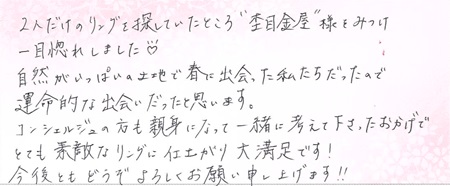 2人だけのリングを探していたところ“杢目金屋”様をみつけ
一目惚れしました♡
自然がいっぱいの土地で春に出会った私たちだったので
運命的な出会いだったと思います。
コンシェルジュの方も親身になって一緒に考えて下さったおかげで
とても素敵なリングに仕上がり大満足です!
今後ともどうぞよろしくお願い申し上げます!!